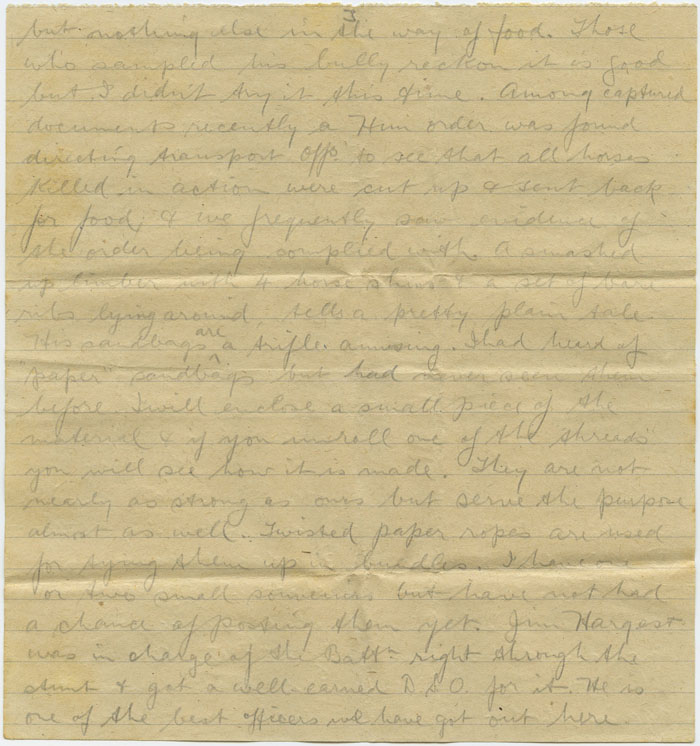 3
but nothing else in the way of food. Those
who sampled his bully reckon it is good
but I didn't try it this time. Among captured
documents recently a Hun order was found
directing transport Offs to see that all horses
killed in action were cut up & sent back
for food, & we frequently saw evidence of
the order being complied with. A smashed
up limber with 4 horse skins & a set of bare
ribs lying around tells a pretty plain tale.
His sandbags are a trifle amusing. I had heard of
"paper" sandbags but had never seen them
before. I will enclose a small piece of the
material & if you unroll one of the "threads"
you will see how it is made. They are not
nearly as strong as ours but serve the purpose
almost as well. Twisted paper ropes are used
for tying them up in bundles. I have one
or two small souvenirs but have not had
a chance of posting them yet. Jim Hargest
was in charge of the Battn right through the
stunt & got a well earned D.S.O. for it. He is
one of the best officers we have got out here.